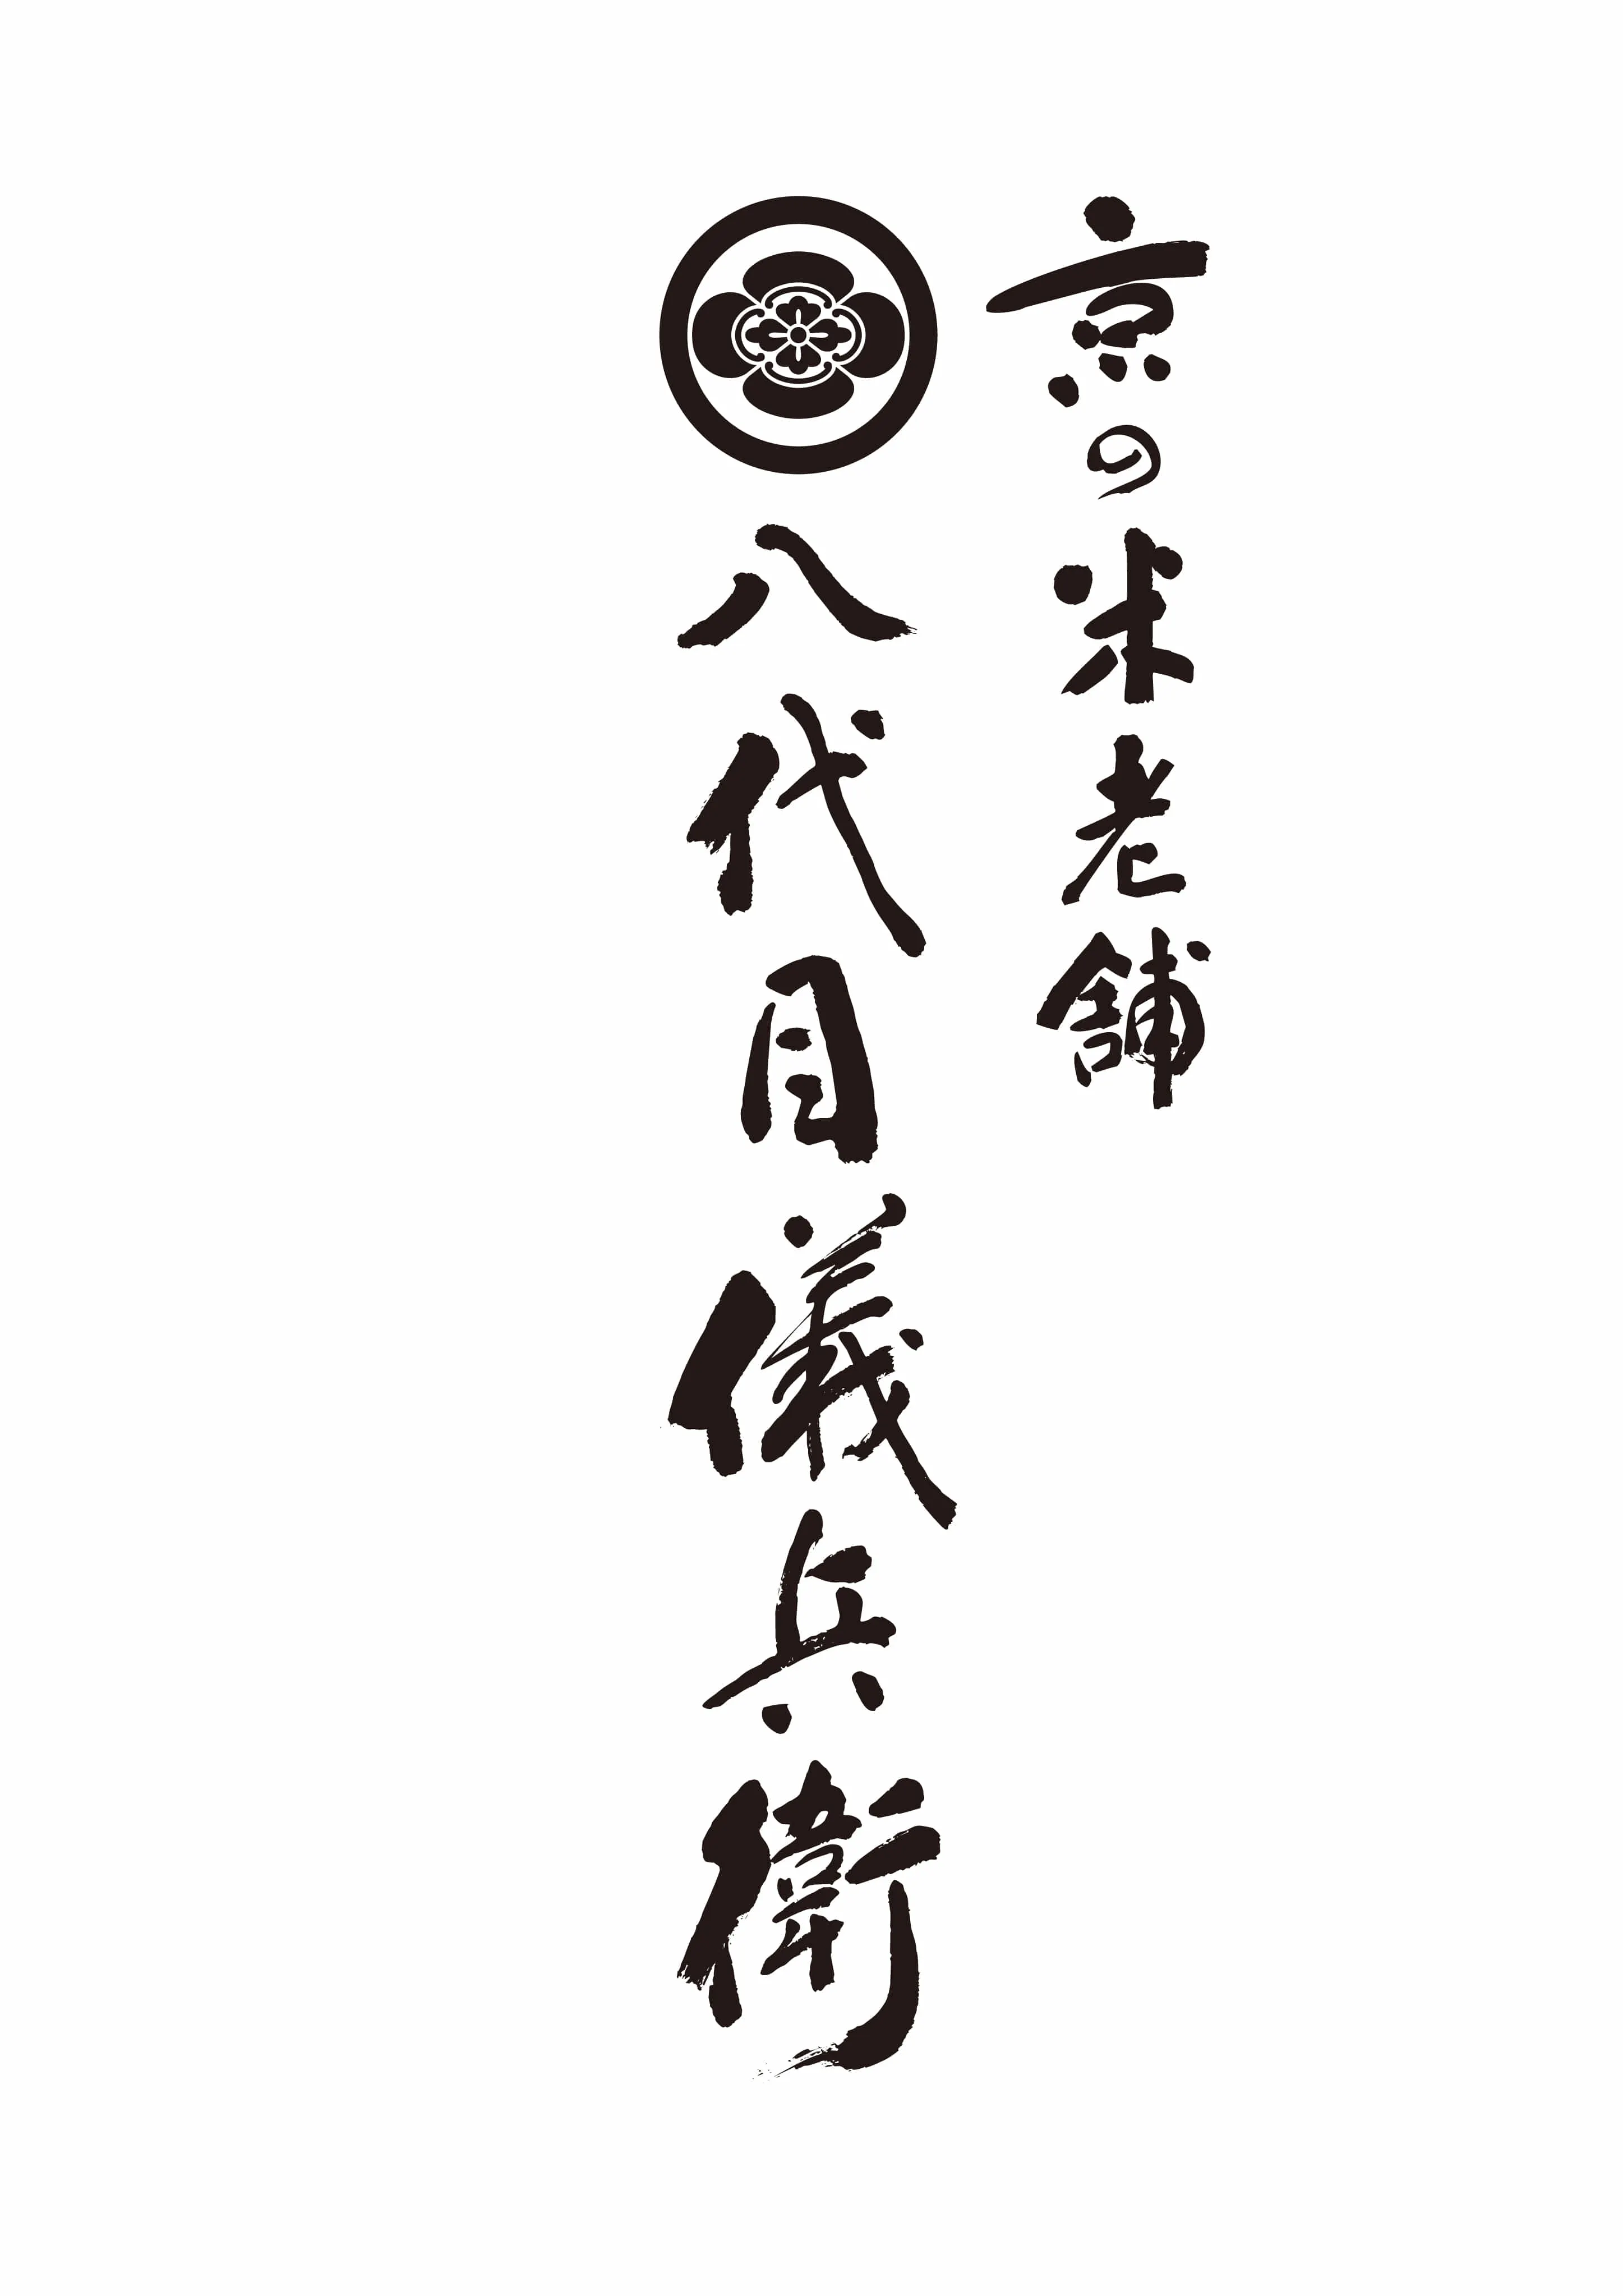 京の米老舗
八代目儀兵衛